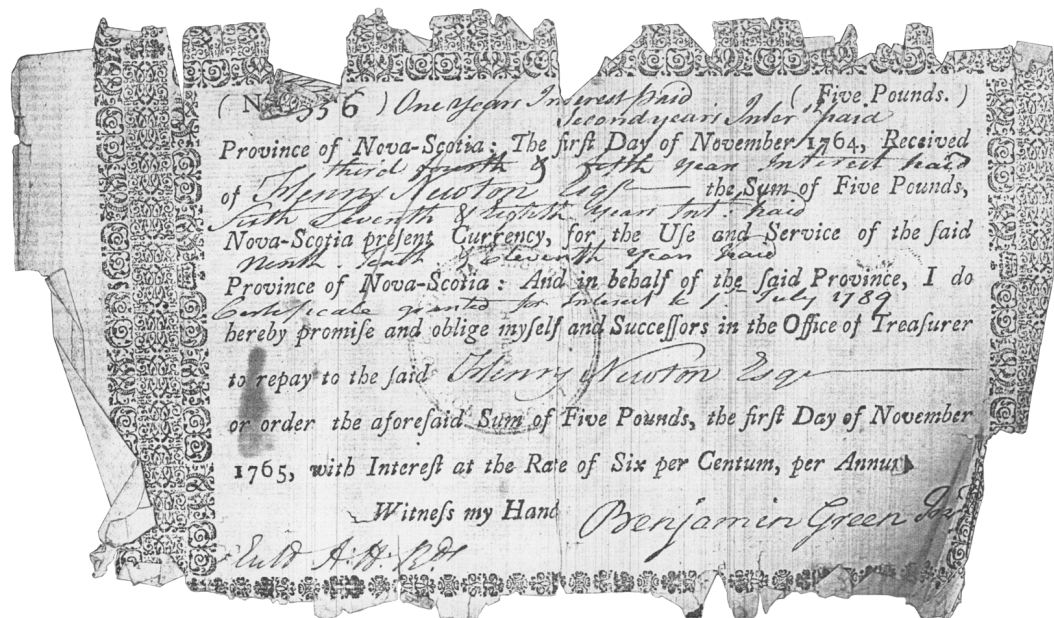 ( No 356 ) One Years Interest paid ( Five Pounds. )
Second years Inter paid
Province of Nova-Scotia: The firſt Day of November 1764, Received
third fourth & fifth year Interest paid
of Henry Newton Esqr the Sum of Five Pounds,
Sixth Seventh & Eighth Years Int. paid
Nova-Scotia preſent Currency, for the Uſe and Service of the ſaid
Ninth Tenth & Eleventh Year paid
Province of Nova-Scotia: And in behalf of the ſaid Province, I do
Certificate granted for Interest to 1st July 1789
hereby promiſe and oblige myſelf and Succeſſors in the Office of Treaſurer
to repay to the ſaid Henry Newton Esqr
or order the aforeſaid Sum of Five Pounds, the firſt Day of November
1765, with Intereſt at the Rate of Six per Centum, per Annum
Witneſs my Hand Benjamin Green